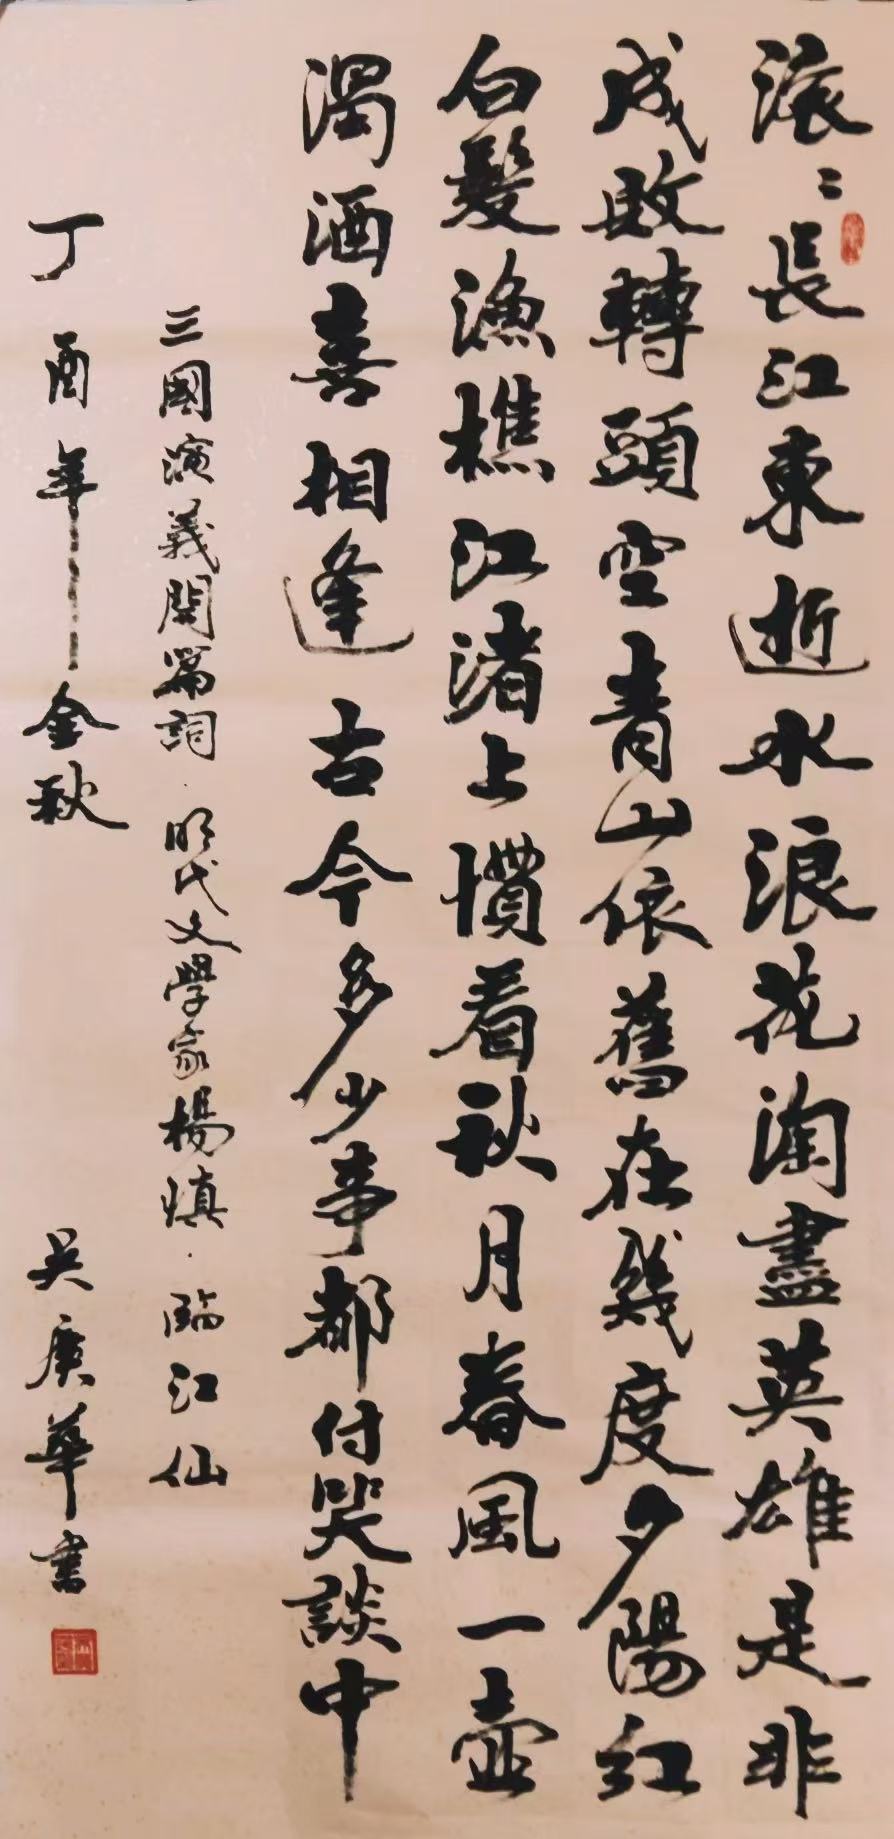 滚〻長江東逝水浪花淘盡英雄是非
成敗轉頭空青山依舊在幾度夕陽紅
白髮漁樵江渚上慣看秋月春風一壺
濁酒喜相逢古今多少事都付笑談中
三國演義開篇詞·明代文學家楊慎·臨江仙
丁酉年金秋 吳庚華書